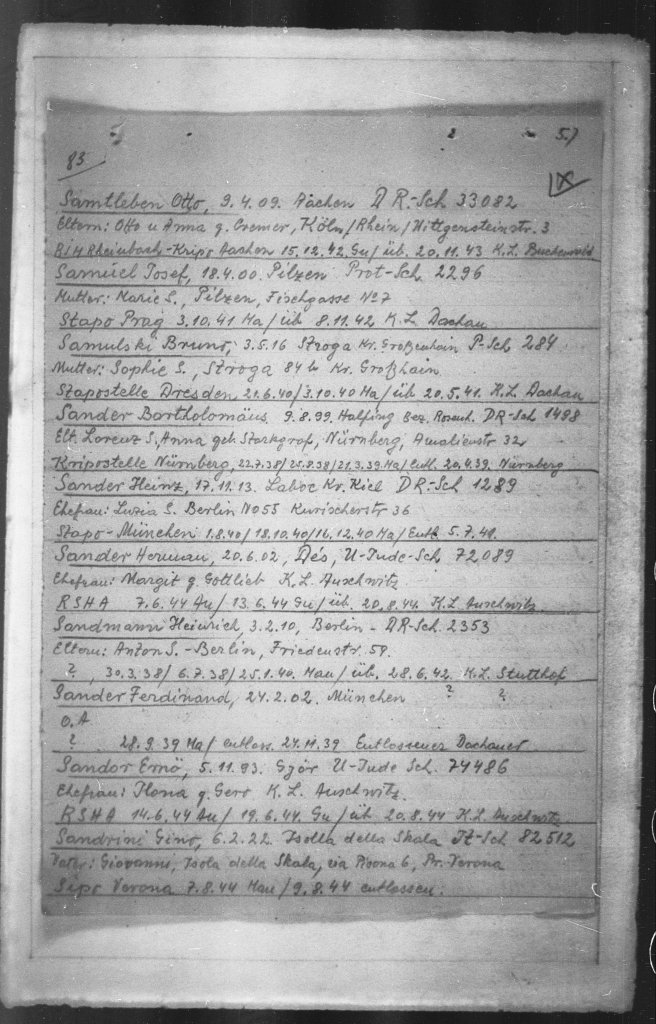 57
83
IX
Samtleben Otto, 9.4.09. Aachen D R.-Sch 33082
Eltern: Otto u Anna g. Cremer, Köln/Rhein/Wittgensteinstr. 3
RSH Rheinbach-Kripo Aachen 15.12.42. Gu/üb. 20.11.43 K.L. Buchenwald
Samuel Josef, 18.4.00. Pilzen Prot-Sch. 2296
Mutter: Marie S., Pilzen, Fischgasse No 7
Stapo Prag 3.10.41 Ma/üb 8.11.42 K.L. Dachau
Samulski Bruno, 3.5.16 Stroga Kr. Großenhain P-Sch 284
Mutter: Sophie S., Stroga 84b Kr. Großhain
Stapostelle Dresden 21.6.40/3.10.40 Ma/üb 20.5.41. K.L. Dachau
Sander Bartholomäus 9.8.99. Halfing Bez. Rosenh. DR-Sch 1498
Elt. Lorenz S, Anna geb. Starkgraf, Nürnberg, Amalienstr 32
Kripostelle Nürnberg, 22.7.38/25.8.38/21.3.39. Ma/Entl. 20.4.39. Nürnberg
Sander Heinz, 17.11.13. Laboe Kr. Kiel DR.-Sch 1289
Ehefrau: Luzia S. Berlin NO55 Kurischerstr 36
Stapo-München 1.8.40/18.10.40/16.12.40 Ma/Entl. 5.7.41.
Sander Herman, 20.6.02, Des, U-Jude-Sch 72089
Ehefrau: Margit g. Gottlieb K.L. Auschwitz
RSHA 7.6.44 Au/13.6.44 Gu/üb. 20.8.44. K.L. Auschwitz
Sandmann Heinrich, 3.2.10, Berlin - DR-Sch. 2353
Eltern: Anton S. - Berlin, Friedenstr. 58.
?, 30.3.38/6.7.38/25.1.40. Mau/üb. 28.6.42. K.L. Stutthof
Sander Ferdinand, 24.2.02. München ? ?
O.A
? 28.9.39 Ma/entlass. 24.11.39 Entlassener Dachauer
Sandor Ernö, 5.11.93. Györ U-Jude Sch. 74486
Ehefrau: Ilona g. Gero K.L. Auschwitz.
RSHA 14.6.44 Au/19.6.44. Gu/üb 20.8.44 K.L. Auschwitz
Sandrini Gino, 6.2.22. Isolla della Skala It-Sch 82512
Vater: Giovanni, Isola della Skala, via 6, Pr. Verona
Sipo Verona 7.8.44 Mau/9.8.44 entlassen.